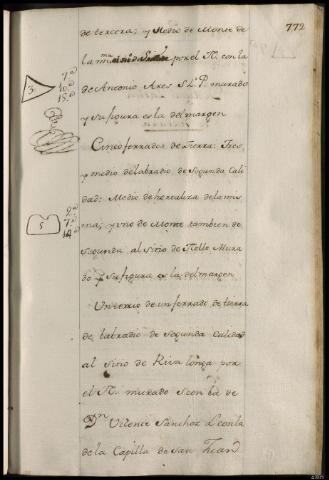 772
de tercera; y Medio de Monte de
la mma por el N. con la
de Antonio Ares S. L. P. murado
y su figura es la del margen
3
7.a
10.a
15.a
Cinco ferrados de tierra: Tres,
y medio de labradio de Segunda Cali
dad: Medio de herealiza de la mis
ma; y uno de Monte tambien de
Segunda al Sitio de Mura
do y su figura es la del margen
5
9.a
7.a
Un tercio de un ferrado de tierra
de labradio de Segunda Calidad
al Sitio de Riva longa por
el N. murado S. con la de
Dn Vicente Sanchez L. con la
de la Capilla de San